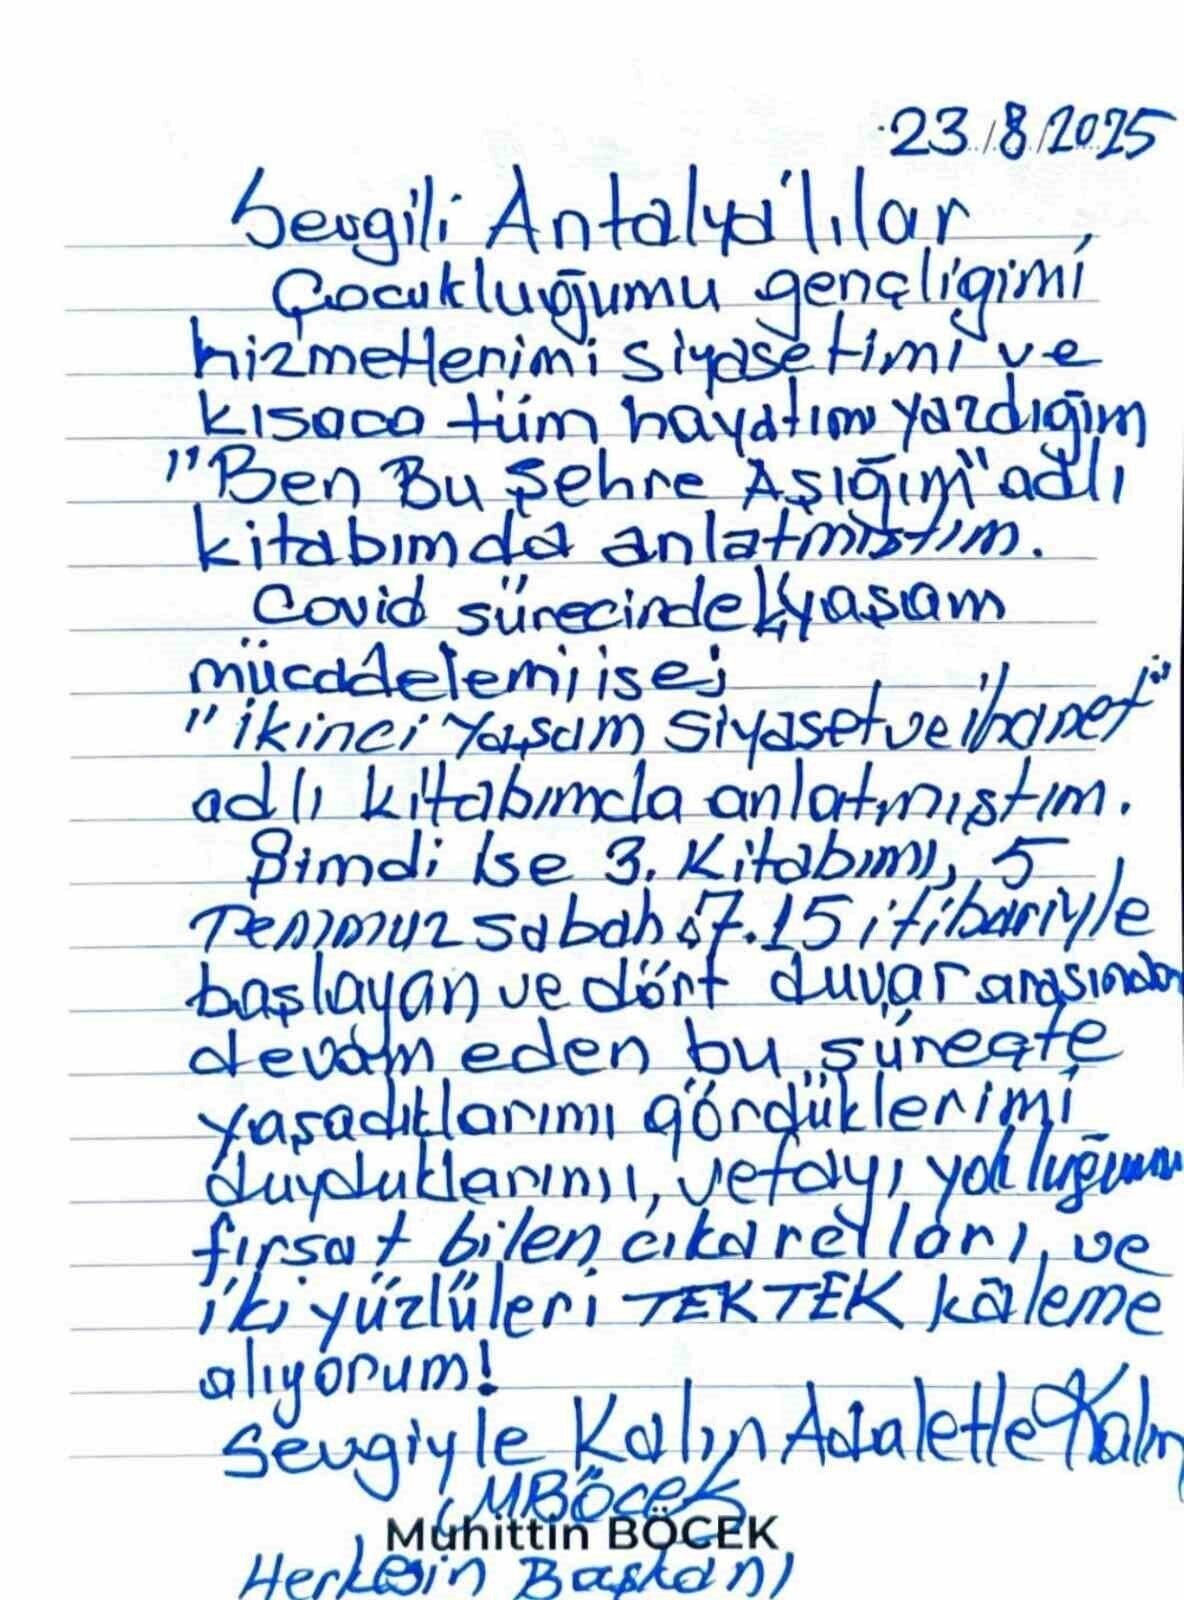 23/8/2025
Sevgili Antalya'lılar,
Çocukluğumu gençliğimi
hizmetlerimi siyasetimi ve
kısaca tüm hayatımı yazdığım
"Ben Bu Şehre Aşığım" adlı
kitabımda anlatmıştım.
Covid sürecindeki yaşam
mücadelemi ise;
"İkinci Yaşam Siyaset ve İhanet"
adlı kitabımda anlatmıştım.
Şimdi ise 3. Kitabımı, 5
Temmuz sabah 07.15 itibariyle
başlayan ve dört duvar arasından
devam eden bu süreçte
yaşadıklarımı gördüklerimi
duyduklarımı, vefayı, yokluğumu
fırsat bilen çıkarcıları, ve
iki yüzlüleri TEK TEK kaleme
alıyorum!
Sevgiyle Kalın Adaletle Kalın
MBöcek
Muhittin BÖCEK
Herkesin Başkanı